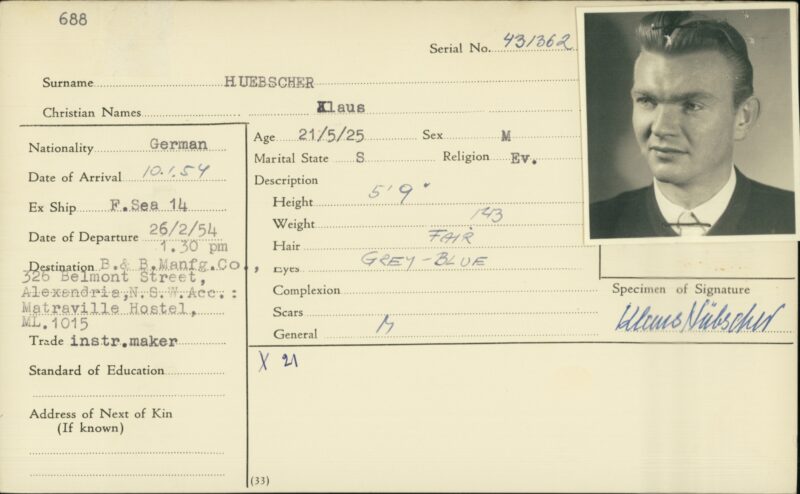 688
Serial No. 431362
Surname HUEBSCHER
Christian Names Klaus
Nationality German
Date of Arrival 10.1.54
Ex Ship F.Sea 14
Date of Departure 26/2/54
1.30 pm
Destination B.& B.Manfg.Co.,
326 Belmont Street,
Alexandria,N.S.W.Acc.:
Matraville Hostel,
ML.1015
Trade instr.maker
Standard of Education
Address of Next of Kin
(If known)
Age 21/5/25 Sex M
Marital State S Religion Ev.
Description
Height 5'9"
Weight 143
Hair FAIR
Eyes GREY-BLUE
Complexion
Scars
General M
X 21
(33)
Specimen of Signature
Klaus Hübscher